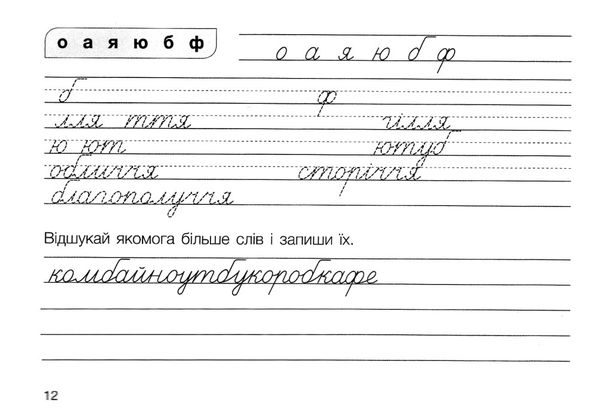 о а я ю б ф о а я ю б ф
б ф
лля ття гілля
ю ют ютуб
обличчя сторіччя
благополуччя
Відшукай якомога більше слів і запиши їх.
комбайноутбукоробкафе
12